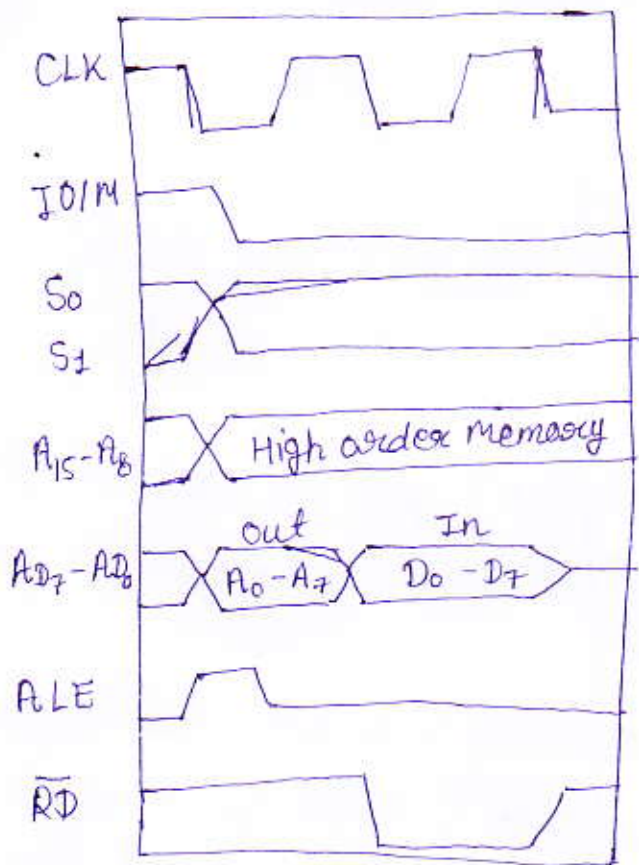 CLK
IO/M
S₀
S₁
A₁₅-A₈
High order memory
out In
AD₇-AD₀
A₀-A₇ D₀-D₇
ALE
R̅D̅